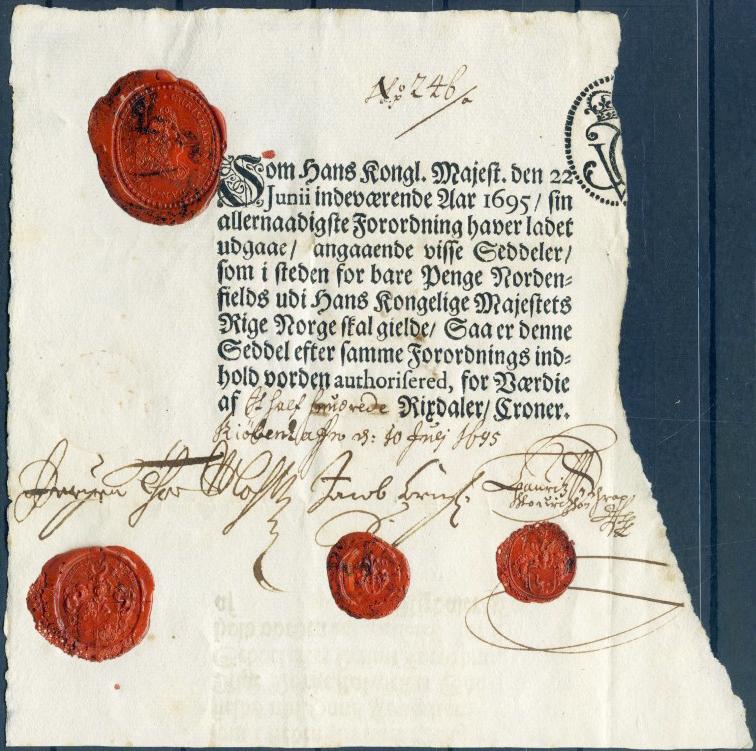 No 246
Som Hans Kongl. Majest. den 22
Junii indeværende Aar 1695/ sin
allernaadigste Forordning haver ladet
udgaae/ angaaende visse Seddeler/
som i steden for bare Penge Norden-
fields udi Hans Kongelige Majestets
Rige Norge skal gielde/ Saa er denne
Seddel efter samme Forordnings ind-
hold vorden authoriseret, for Værdie
af Et half hundrede Rixdaler/ Croner.
Kiøbenhafn d: 10 Julj 1695
Jørgen Thor Mohlen